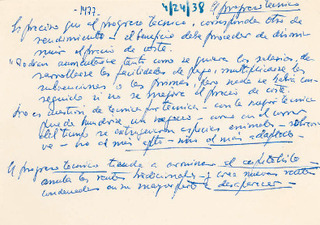 -1477- 4/24/38 El progreso tecnico
Es preciso que al progreso tecnico, corresponda otro de
rendimiento - el beneficio debe proceder de dismi-
nuir el precio de coste.
"Podrán aumentarse tanto como se quiera los salarios, de-
sarrollarse las facilidades de pago, multiplicarse las
subvenciones y las primas, pero nada se habrá con-
seguido si no se mejora el precio de coste.
No es cuestion de tecnica por tecnica - con la mejor tecnica
puede hundirse un negocio - como en el curso
del tiempo se extinguieron especies animales - sobrevi-
ve - no el más apto - sino el más adaptado -
El progreso tecnico tiende a arruinar el capitalista
anula las rentas tradicionales - y crea nuevas rentas
condenadas en su mayor parte a desaparecer -